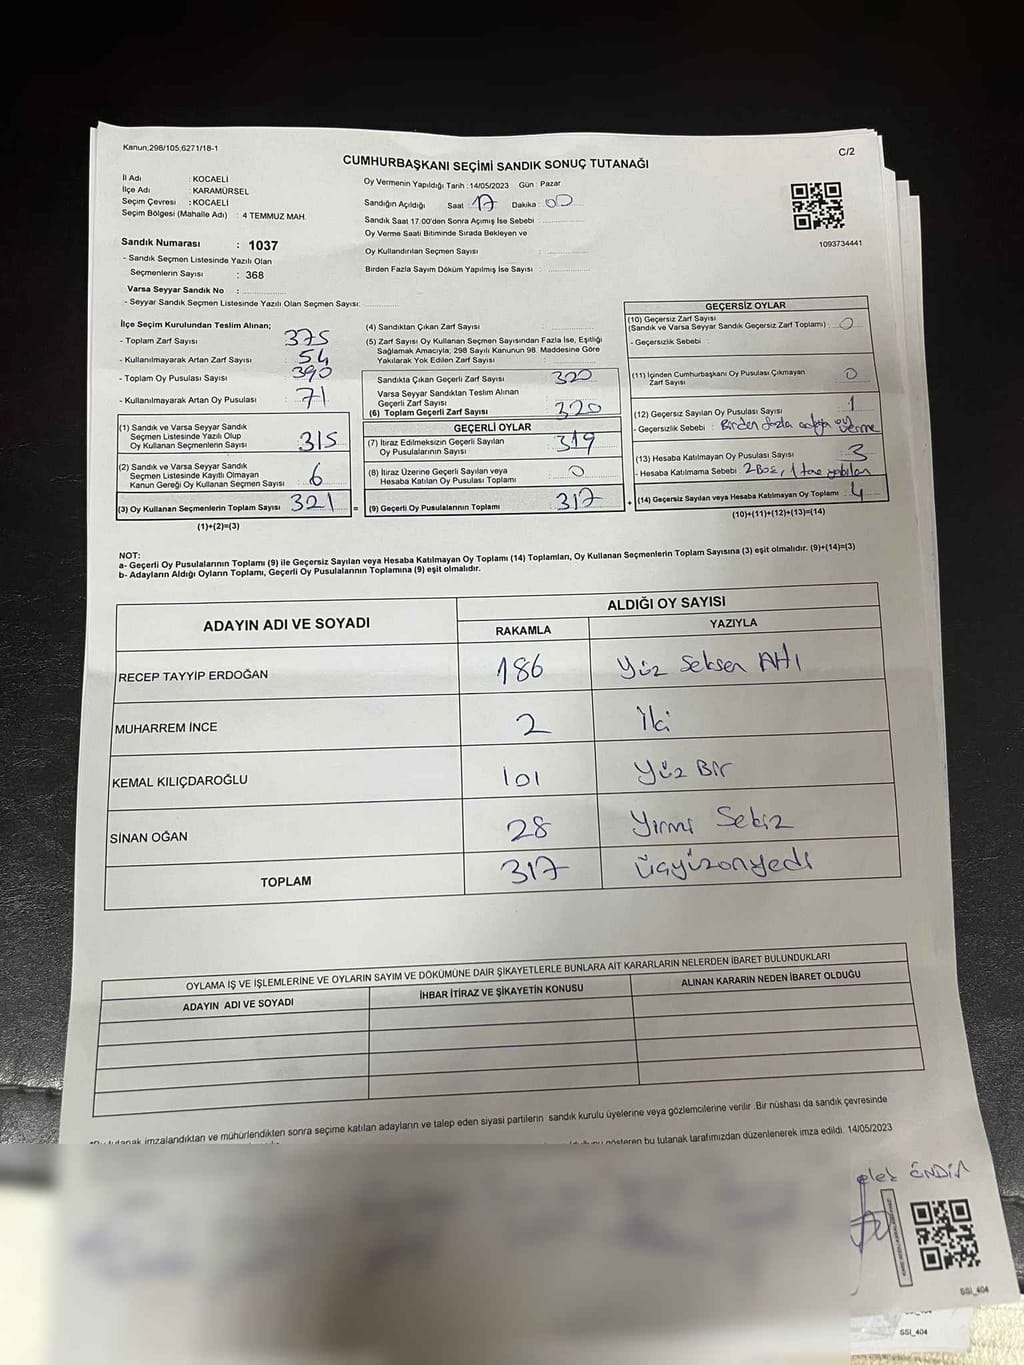 Kanun,298/105,6271/18-1
C/2
CUMHURBAŞKANI SEÇİMİ SANDIK SONUÇ TUTANAĞI
İl Adı : KOCAELİ
İlçe Adı : KARAMÜRSEL
Seçim Çevresi : KOCAELİ
Seçim Bölgesi (Mahalle Adı) : 4 TEMMUZ MAH.
Oy Vermenin Yapıldığı Tarih : 14/05/2023 Gün : Pazar
Sandığın Açıldığı Saat : 17 Dakika : 00
Sandık Saat 17.00'den Sonra Açımış İse Sebebi :
Oy Verme Saati Bitiminde Sırada Bekleyen ve
Oy Kullandırılan Seçmen Sayısı :
Birden Fazla Sayım Döküm Yapılmış İse Sayısı :
1093734441
Sandık Numarası : 1037
- Sandık Seçmen Listesinde Yazılı Olan
Seçmenlerin Sayısı : 368
Varsa Seyyar Sandık No :
- Seyyar Sandık Seçmen Listesinde Yazılı Olan Seçmen Sayısı:
İlçe Seçim Kurulundan Teslim Alınan;
- Toplam Zarf Sayısı : 375
- Kullanılmayarak Artan Zarf Sayısı : 54
- Toplam Oy Pusulası Sayısı : 390
- Kullanılmayarak Artan Oy Pusulası : 71
(1) Sandık ve Varsa Seyyar Sandık
Seçmen Listesinde Yazılı Olup
Oy Kullanan Seçmenlerin Sayısı : 315
(2) Sandık ve Varsa Seyyar Sandık
Seçmen Listesinde Kayıtlı Olmayan
Kanun Gereği Oy Kullanan Seçmen Sayısı : 6
(3) Oy Kullanan Seçmenlerin Toplam Sayısı : 321
(1)+(2)=(3)
(4) Sandıktan Çıkan Zarf Sayısı :
(5) Zarf Sayısı Oy Kullanan Seçmen Sayısından Fazla İse, Eşitliği
Sağlamak Amacıyla, 298 Sayılı Kanunun 98. Maddesine Göre
Yakılarak Yok Edilen Zarf Sayısı :
Sandıkta Çıkan Geçerli Zarf Sayısı : 320
Varsa Seyyar Sandıktan Teslim Alınan
Geçerli Zarf Sayısı
(6) Toplam Geçerli Zarf Sayısı : 320
GEÇERLİ OYLAR
(7) İtiraz Edilmeksizin Geçerli Sayılan
Oy Pusulalarının Sayısı : 319
(8) İtiraz Üzerine Geçerli Sayılan veya
Hesaba Katılan Oy Pusulası Toplamı : 0
= (9) Geçerli Oy Pusulalarının Toplamı : 317 +
GEÇERSİZ OYLAR
(10) Geçersiz Zarf Sayısı
(Sandık ve Varsa Seyyar Sandık Geçersiz Zarf Toplamı) : 0
- Geçersizlik Sebebi :
(11) İçinden Cumhurbaşkanı Oy Pusulası Çıkmayan
Zarf Sayısı : 0
(12) Geçersiz Sayılan Oy Pusulası Sayısı : 1
- Geçersizlik Sebebi : Birden fazla adaya oy verme
(13) Hesaba Katılmayan Oy Pusulası Sayısı : 3
- Hesaba Katılmama Sebebi : 2 Boş, 1 tane
(14) Geçersiz Sayılan veya Hesaba Katılmayan Oy Toplamı : 4
(10)+(11)+(12)+(13)=(14)
NOT:
a- Geçerli Oy Pusulalarının Toplamı (9) ile Geçersiz Sayılan veya Hesaba Katılmayan Oy Toplamı (14) Toplamları, Oy Kullanan Seçmenlerin Toplam Sayısına (3) eşit olmalıdır. (9)+(14)=(3)
b- Adayların Aldığı Oyların Toplamı, Geçerli Oy Pusulalarının Toplamına (9) eşit olmalıdır.
ADAYIN ADI VE SOYADI
ALDIĞI OY SAYISI
RAKAMLA YAZIYLA
RECEP TAYYİP ERDOĞAN 186 Yüz Seksen Altı
MUHARREM İNCE 2 İki
KEMAL KILIÇDAROĞLU 101 Yüz Bir
SİNAN OĞAN 28 Yirmi Sekiz
TOPLAM 317 üçyüzonyedi
OYLAMA İŞ VE İŞLEMLERİNE VE OYLARIN SAYIM VE DÖKÜMÜNE DAİR ŞİKAYETLERLE BUNLARA AİT KARARLARIN NELERDEN İBARET BULUNDUKLARI
ADAYIN ADI VE SOYADI İHBAR İTİRAZ VE ŞİKAYETİN KONUSU ALINAN KARARIN NEDEN İBARET OLDUĞU
tutanak imzalandıktan ve mühürlendikten sonra seçime katılan adayların ve talep eden siyasi partilerin sandık kurulu üyelerine veya gözlemcilerine verilir .Bir nüshası da sandık çevresinde
gösteren bu tutanak tarafımızdan düzenlenerek imza edildi. 14/05/2023
SSI_404
SSI_404